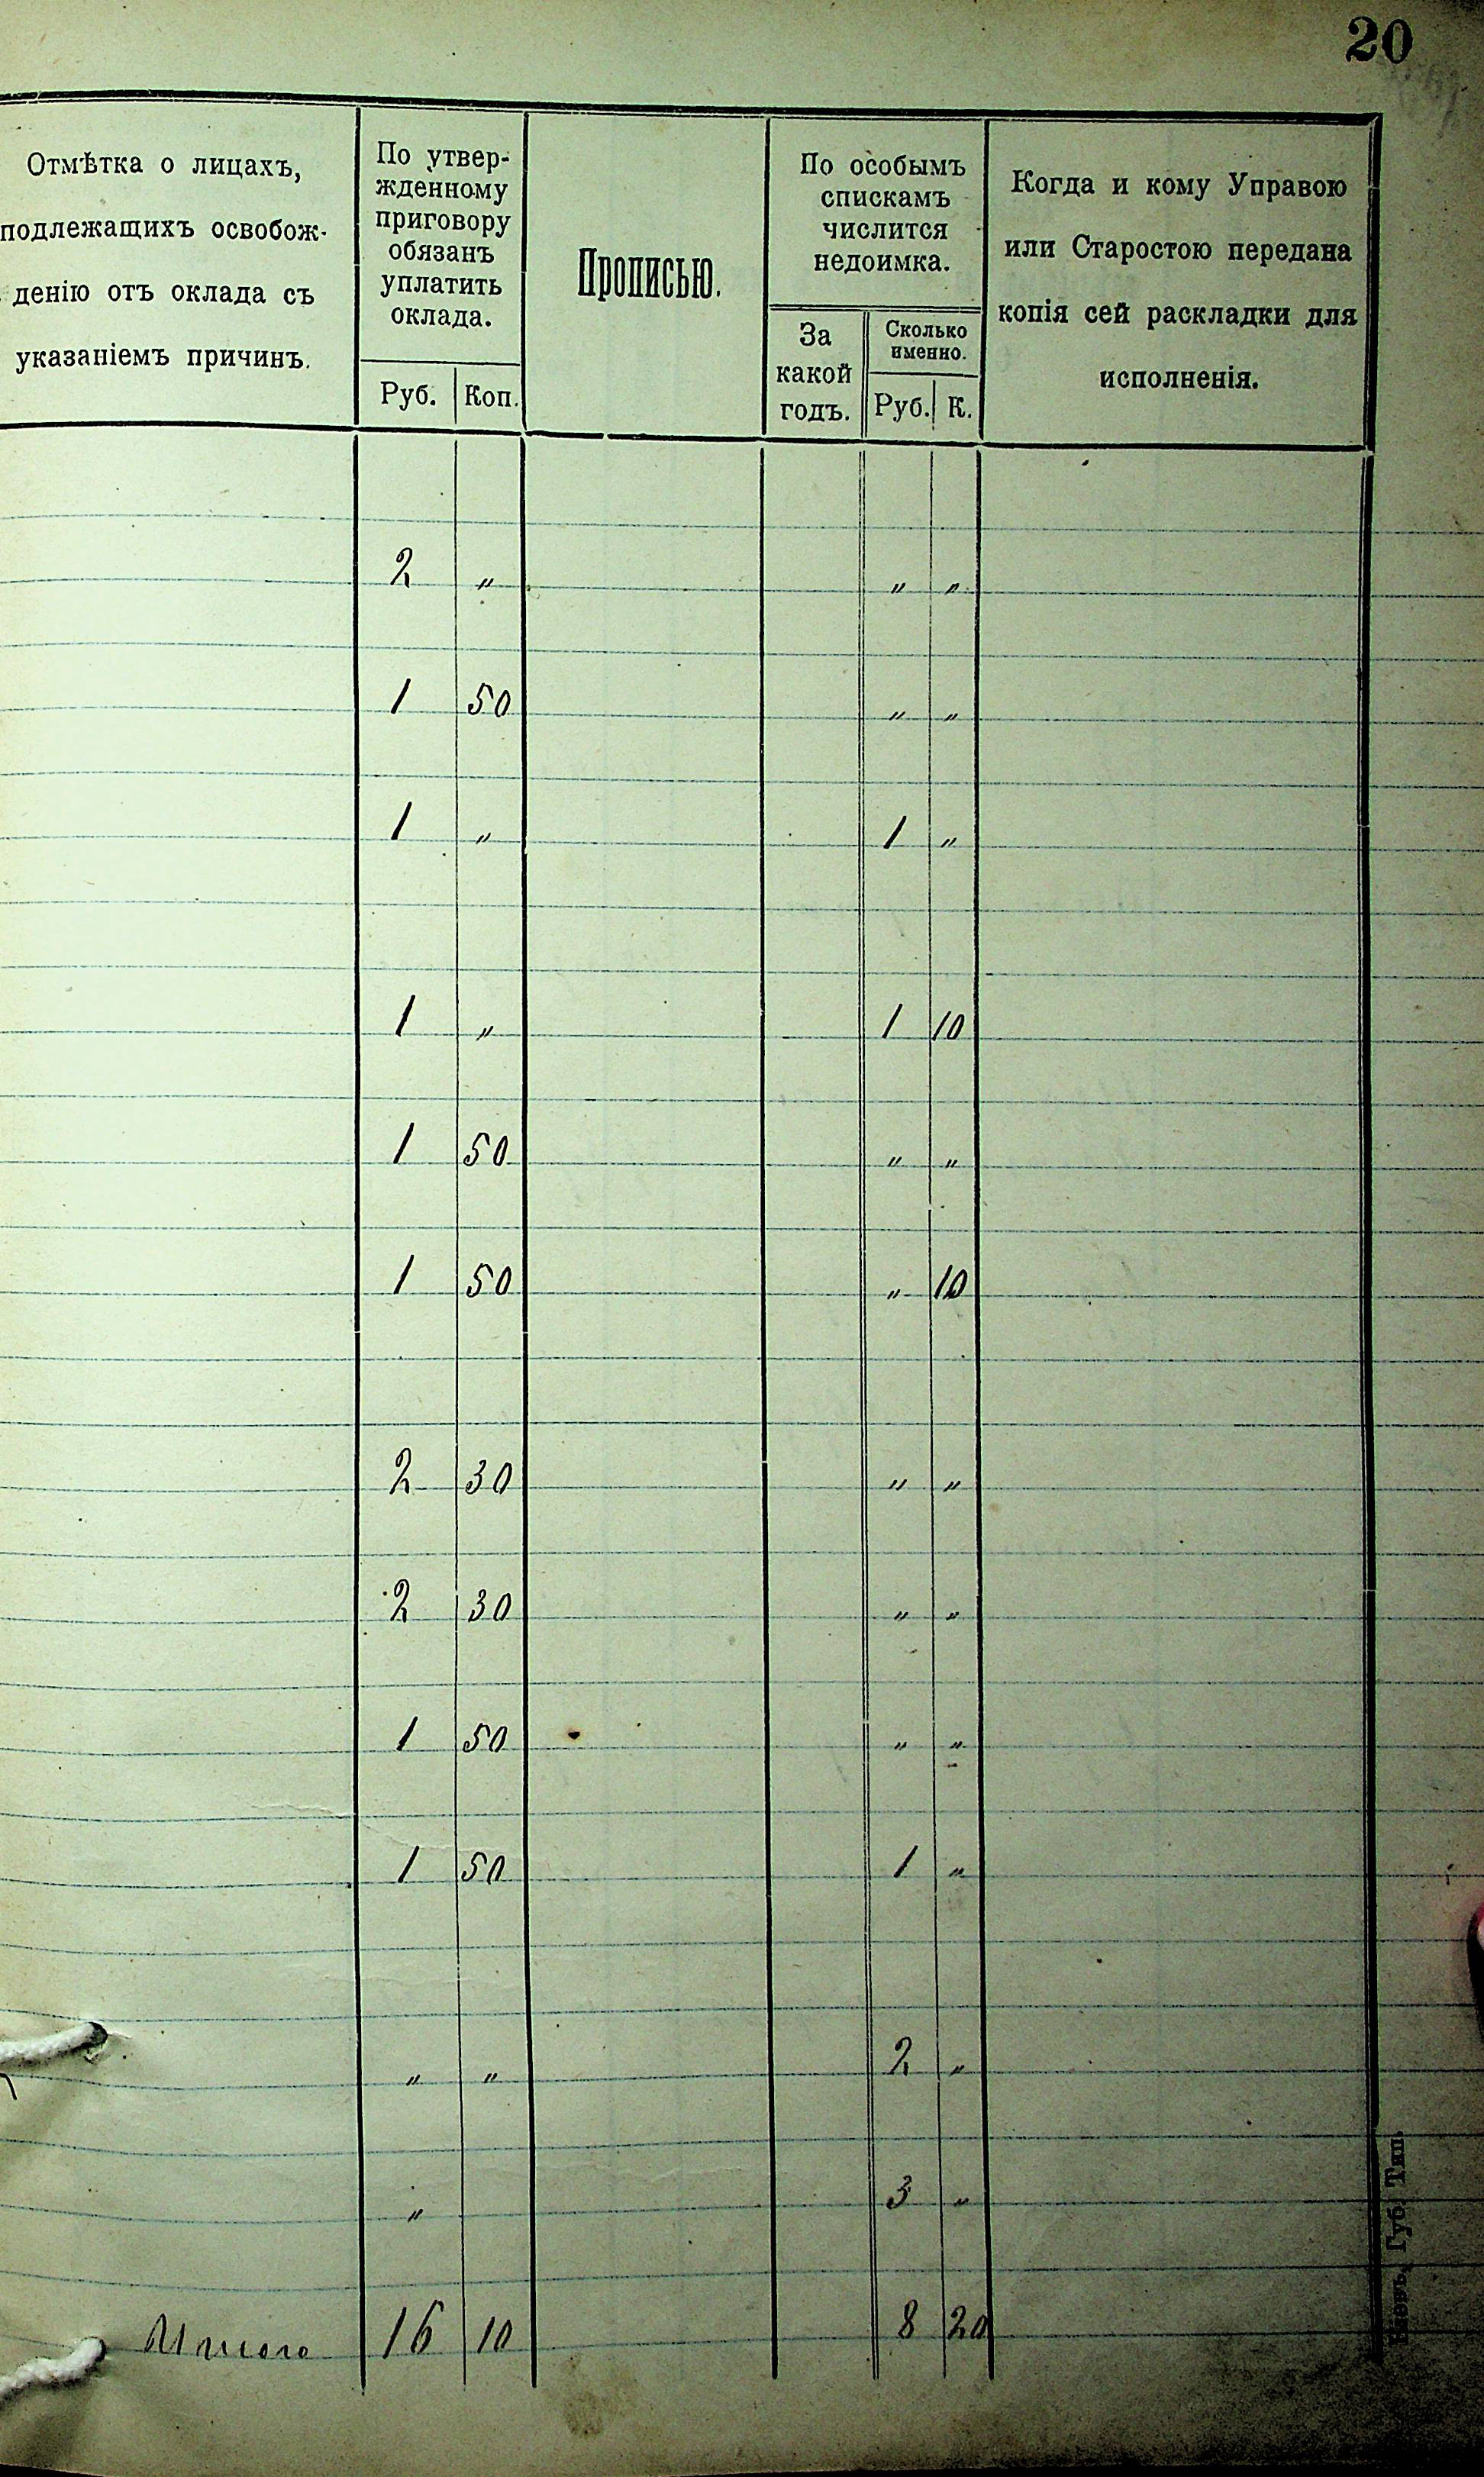 20
Отмѣтка о лицахъ,
подлежащихъ освобож-
денію отъ оклада съ
указаніемъ причинъ.
По утвер-
жденному
приговору
обязанъ
уплатить
оклада.
Руб. Коп.
Прописью.
По особымъ
спискамъ
числится
недоимка.
За
какой
годъ.
Сколько
именно.
Руб. К.
Когда и кому Управою
или Старостою передана
копія сей раскладки для
исполненія.
2 „ „ „
1 50 „ „
1 „ 1 „
1 „ 1 10
1 50 „ „
1 50 „ 10
2 30 „ „
2 30 „ „
1 50 „ „
1 50 1 „
„ „ 2 „
„ 3 „
Итого 16 10 8 20
Кіевъ, Губ. Тип.